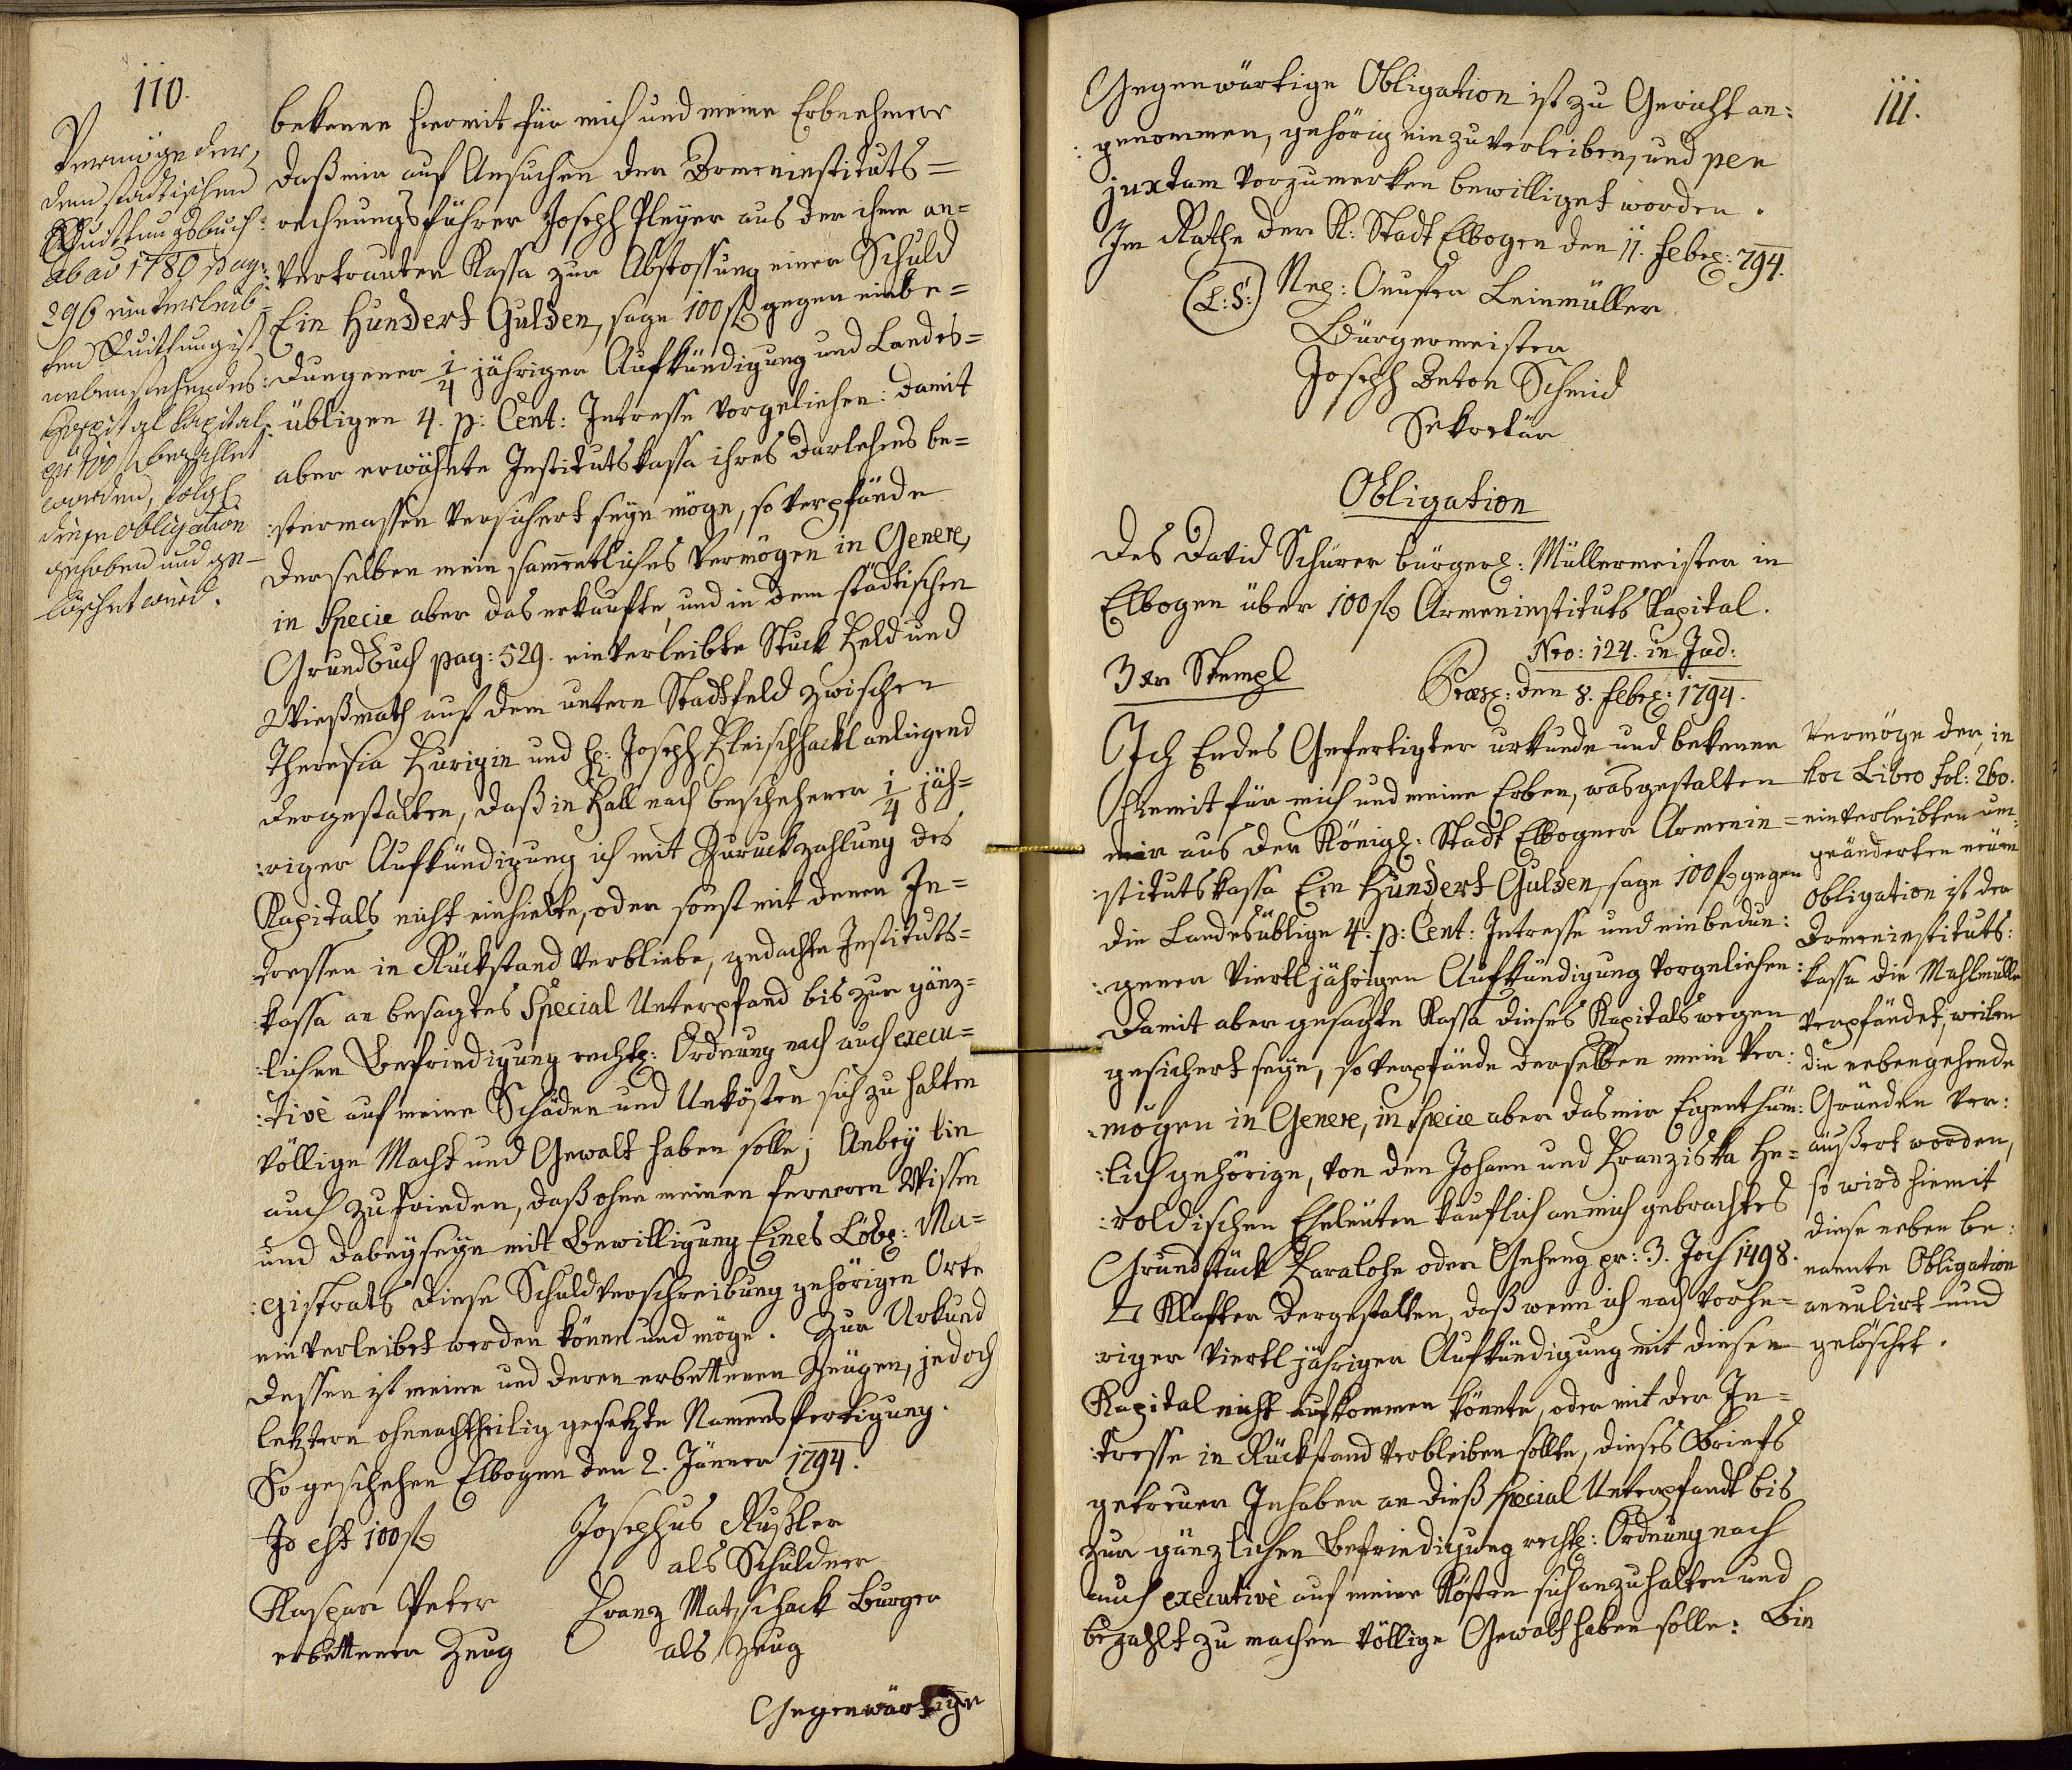 110.
Vermöge der,
dem städtischen
Quittungsbuch
ab ao 1780 pag:
296 einverleib-
ten Quittung ist
nebenstehendes
Hospital Kapital
pr 100 f bezahlet
worden, folgl:
diese Obligation
gehoben und ge-
löschet wird.
bekenne hiermit für mich und meine Erbnehmer
daß mir auf Ansuchen der Armeninstituts=
rechnungsführer Joseph Pleyer aus der ihme an=
vertrauten Kassa zur Abstossung einer Schuld
Ein Hundert Gulden, sage 100 f gegen einbe=
dungener 1/4 jähriger Aufkündigung und Landes=
übligen 4. p: Cent: Intresse vorgeliehen: damit
aber erwähnte Institutskassa ihres Darlehens be=
:stermassen versichert seyn möge, so verpfände
derselben mein sammtliches Vermögen in Genere,
in Specie aber das erkaufte, und in dem städtischen
Grundbuch pag: 529. einverleibte Stuck Feld und
Wießmath auf dem untern Stadtfeld zwischen
Theresia Hurigin und H: Joseph Fleischhackl anliegend
dergestalten, daß in Fall nach beschehener 1/4 jäh=
:riger Aufkündigung ich mit Zuruckzahlung des
Kapitals nicht einhielte, oder sonst mit denen In=
tressen in Rückstand verbliebe, gedachte Instituts=
kassa an besagtes Special Unterpfand bis zur gänz=
:lichen Befriedigung rechtl: Ordnung nach auch execu=
:tivè auf meine Schäden und Unkösten sich zu halten
völlige Macht und Gewalt haben solle; Anbey bin
auch zufrieden, daß ohne meinen ferneren Wissen
und dabeyseyn mit Bewilligung Eines Löbl: Ma=
:gistrats diese Schuldverschreibung gehörigen Orts
einverleibet werden könne und möge. Zur Urkund
dessen ist meine und deren erbettenen Zeugen, jedoch
letztern ohnnachtheilig gesetzte Namensfertigung.
So geschehen Elbogen den 2. Jänner 1794.
Id est 100 f
Josephus Rußler
als Schuldner
Kaspar Peter
erbettener Zeug
Franz Matschack Burger
als Zeug
Gegenwärtige
111.
Gegenwärtige Obligation ist zu Gericht an:
:genommen, gehörig einzuverleiben, und per
juxtam vorzumerken bewilliget worden.
Im Rathe der K: Stadt Elbogen den 11. Febr: 794.
(L:S:)
Leinmüller
Bürgermeister
Joseph Anton Schmid
Sekretär
Obligation
Des David Schürer bürgerl: Müllermeister in
Elbogen über 100 f Armeninstituts Kapital.
3 xr Stempl
Nro: 124. in Jud:
Præs: den 8. Febr: 1794.
Ich Endes Gefertigter urkunde und bekenne
hiemit für mich und meine Erben, was gestalten
mir aus der Königl: Stadt Elbogner Armenin=
:stitutskassa Ein Hundert Gulden, sage 100 f gegen
die Landesüblige 4. p: Cent: Intresse und einbedun:
:gener viertljährigen Aufkündigung vorgeliehen:
Damit aber gesagte Kassa dieses Kapitals wegen
gesichert seye, so verpfände derselben mein Ver:
:mögen in Genere, in Specie aber das mir Eigenthüm:
:lich gehörige, von den Johann und Franziska He=
:roldischen Eheleuten käuflich an mich gebrachtes
Grundstück Haralohe oder Geheng pr: 3. Joch 1498.
□ Klafter dergestalten, daß wenn ich nach vorhe=
:riger viertljähriger Aufkündigung mit diesem
Kapital nicht aufkommen könnte, oder mit der In=
:tresse in Rückstand verbleiben sollte, dieses Briefs
getreuer Inhaber an dieß Special Unterpfandt bis
zur gänzlichen Befriedigung rechtl: Ordnung nach
auch executivè auf meine Kösten sich anzuhalten und
bezahlt zu machen völlige Gewalt haben solle: Bin
Vermöge der, in
hoc Libro fol: 260.
einverleibten um:
geänderten neuen
Obligation ist der
Armeninstituts:
kassa die Mahlmülle
verpfändet, weilen
die nebengehende
Gründen ver:
äußert worden,
so wird hiemit
diese neben be:
nannte Obligation
annulirt und
gelöschet.